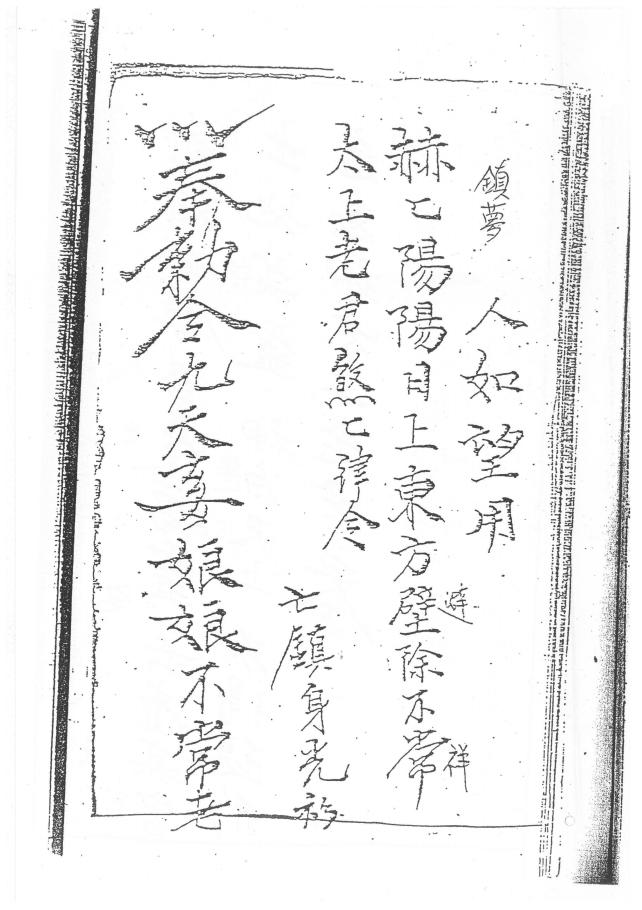 鎮夢
人如望用
赫匕陽陽日上東方壁除不常
避
祥
太上老君煞匕律令
七鎮身禿
奉勅令九天玄娘娘不常老